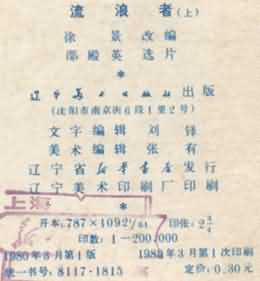 流浪者(上)
徐景 改编
邵殿英 选片
*
辽宁美术出版社出版
(沈阳市南京街6段1里2号)
文字编辑 刘铎
美术编辑 张有
辽宁省新华书店发行
辽宁美术印刷厂印刷
上海
*
开本:787×1092 1/64 印张:2 3/4
印数:1—200,000
1980年3月第1版 1980年3月第1次印刷
统一书号:8117·1815 定价:0.30元